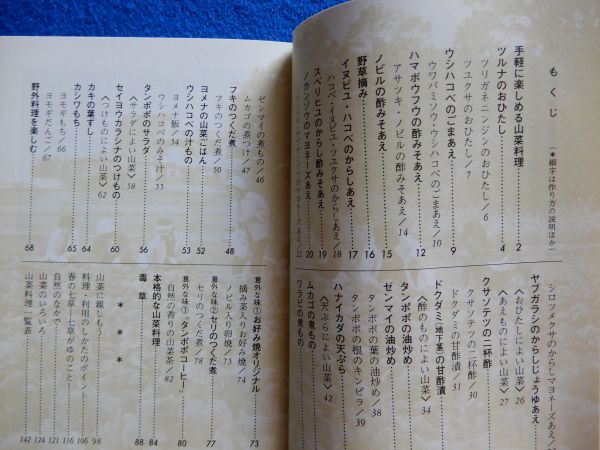 もくじ
(＊細字は作り方の説明ほか)
手軽に楽しめる山菜料理……2
ツルナのおひたし……4
ツリガネニンジンのおひたし／6
ツユクサのおひたし／7
ウシハコベのごまあえ……9
ウワバミソウ・ウシハコベのごまあえ／10
ハマボウフウの酢みそあえ……12
アサツキ・ノビルの酢みそあえ／14
ノビルの酢みそあえ……15
野草摘み……16
イヌビユ・ハコベのからしあえ……17
ハコベ・イヌビユ・ツユクサのからしあえ／18
スベリヒユのからし酢みそあえ……19
ノカンゾウのマヨネーズあえ……20
シロツメクサのからしマヨネーズあえ
ヤブガラシのからしじょうゆあえ
〈おひたしによい山菜〉26
〈あえものによい山菜〉27
クサソテツの二杯酢
クサソテツの二杯酢／30
ドクダミの甘酢漬／31
ドクダミ(地下茎)の甘酢漬
〈酢のものによい山菜〉34
タンポポの油炒め
ゼンマイの油炒め
タンポポの葉の油炒め／38
タンポポの根のキンピラ／39
ハナイカダの天ぷら
〈天ぷらによい山菜〉42
ムカゴの煮もの
ワラビの煮もの
ゼンマイの煮もの／46
ムカゴの煮つけ／47
フキのつくだ煮……48
フキのつくだ煮／50
ヨメナの山菜ごはん……52
ウシハコベの汁もの……53
ヨメナ飯／54
ウシハコベのみそ汁／55
タンポポのサラダ……56
〈サラダによい山菜〉58
セイヨウカラシナのつけもの……60
〈つけものによい山菜〉62
カキの葉ずし……64
カシワもち……65
ヨモギもち／66
ヨモギだんご／67
野外料理を楽しむ……68
意外な味①お好み焼オリジナル……73
摘み菜入りお好み焼／74
ノビル入り卵焼／75
意外な味②セリのつくだ煮……77
セリのつくだ煮／78
意外な味③タンポポコーヒー……80
自然の香りの山菜茶／82
本格的な山菜料理……84
毒草……88
＊＊＊
山菜に親しもう……98
料理・利用のしかたのポイント……106
春の七草―七草がゆのこと―……116
自然のなかで……121
山菜のいろいろ……124
山菜料理一覧表……142